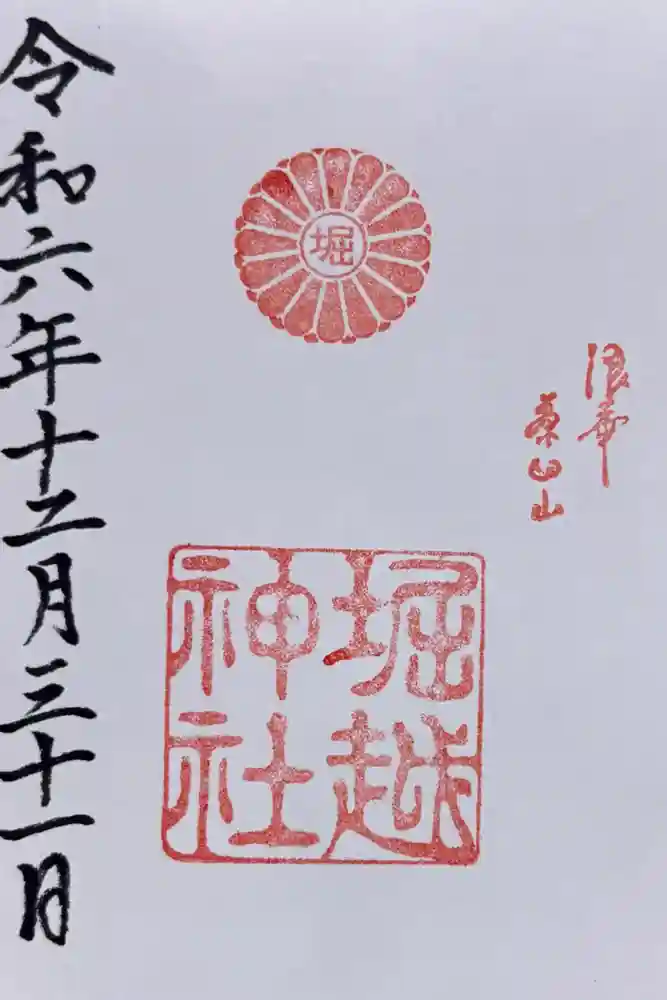 浪華
茶臼山
堀
堀越
神社
令和六年十二月三十一日